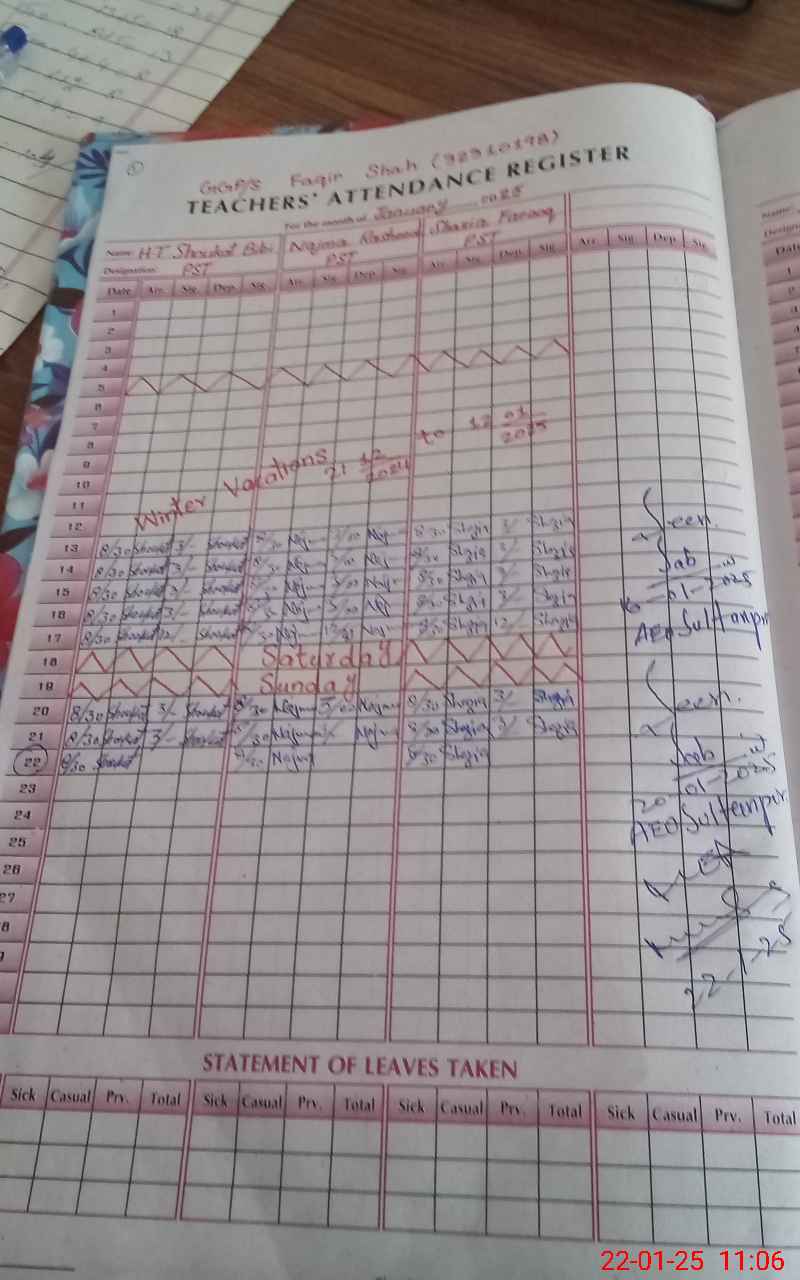 GGP/S Faqir Shah (32310198)
TEACHERS' ATTENDANCE REGISTER
For the month of January 2025
Name H.T. Shoukat Bibi Najma Rasheed Shazia Farooq
Designation PST PST PST
Date Arr. Sig. Dep. Sig. Arr. Sig. Dep. Sig. Arr. Sig. Dep. Sig. Arr. Sig. Dep. Sig.
1
2
3
4
5
6
7
8
9
10
11
Winter Vacations 21 12/2024 to 12 01/2025
12
13 8/30 Shoukat 3/- Shoukat 8/30 Naj 3/00 Naj 8/30 Shazia 3/- Shazia
14 8/30 Shoukat 3/- Shoukat 8/30 Naj 3/00 Naj 8/30 Shazia 3/- Shazia
15 8/30 Shoukat 3/- Shoukat 8/30 Naj 3/00 Naj 8/30 Shazia 3/- Shazia
16 8/30 Shoukat 3/- Shoukat 8/30 Naj 3/00 Naj 8/30 Shazia 3/- Shazia
17 8/30 Shoukat 12/- Shoukat 8/30 Naj Naj 8/30 Shazia 12/- Shazia
18 Saturday
19 Sunday
20 8/30 Shoukat 3/- Shoukat 8/30 Najma 3/00 Najma 8/30 Shazia 3/- Shazia
21 8/30 Shoukat 3/- Shoukat 8/30 Najma 3/ Najma 8/30 Shazia 3/- Shazia
22 8/30 Shoukat 8/30 Najma 8/30 Shazia
23
24
25
26
27
8
Seen.
16-01-2025
AEO Sultanpur
Seen.
20-01-2025
AEO Sultanpur
22-1-25
STATEMENT OF LEAVES TAKEN
Sick Casual Prv. Total Sick Casual Prv. Total Sick Casual Prv. Total Sick Casual Prv. Total
Name
Design
Date
1
2
22-01-25 11:06